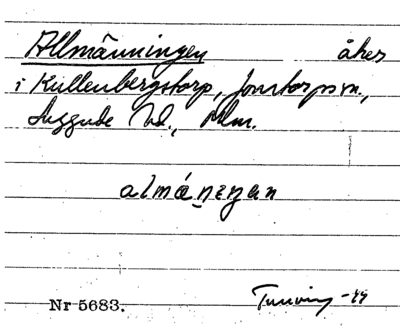 Allmänningen åker
i Kullenbergstorp, Jonstorps sn.,
Luggude hd., Mlm.
almánenan
Nr 5683.
-44